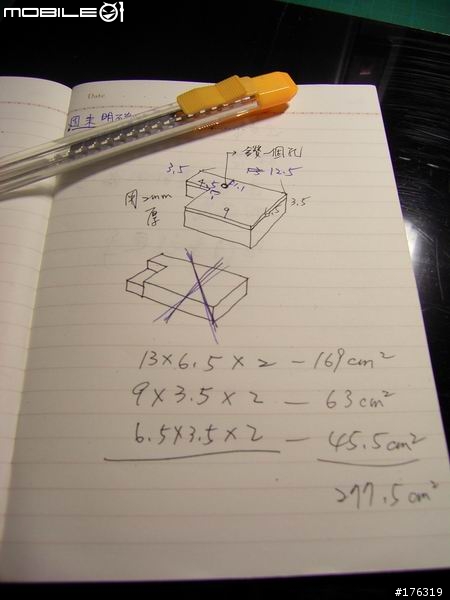 MOBILE01
Date
鑽一個孔
3.5
12.5
3.5
9
6.5
用2mm
厚
13×6.5×2 — 169cm²
9×3.5×2 — 63cm²
6.5×3.5×2 — 45.5cm²
277.5cm²
#176319